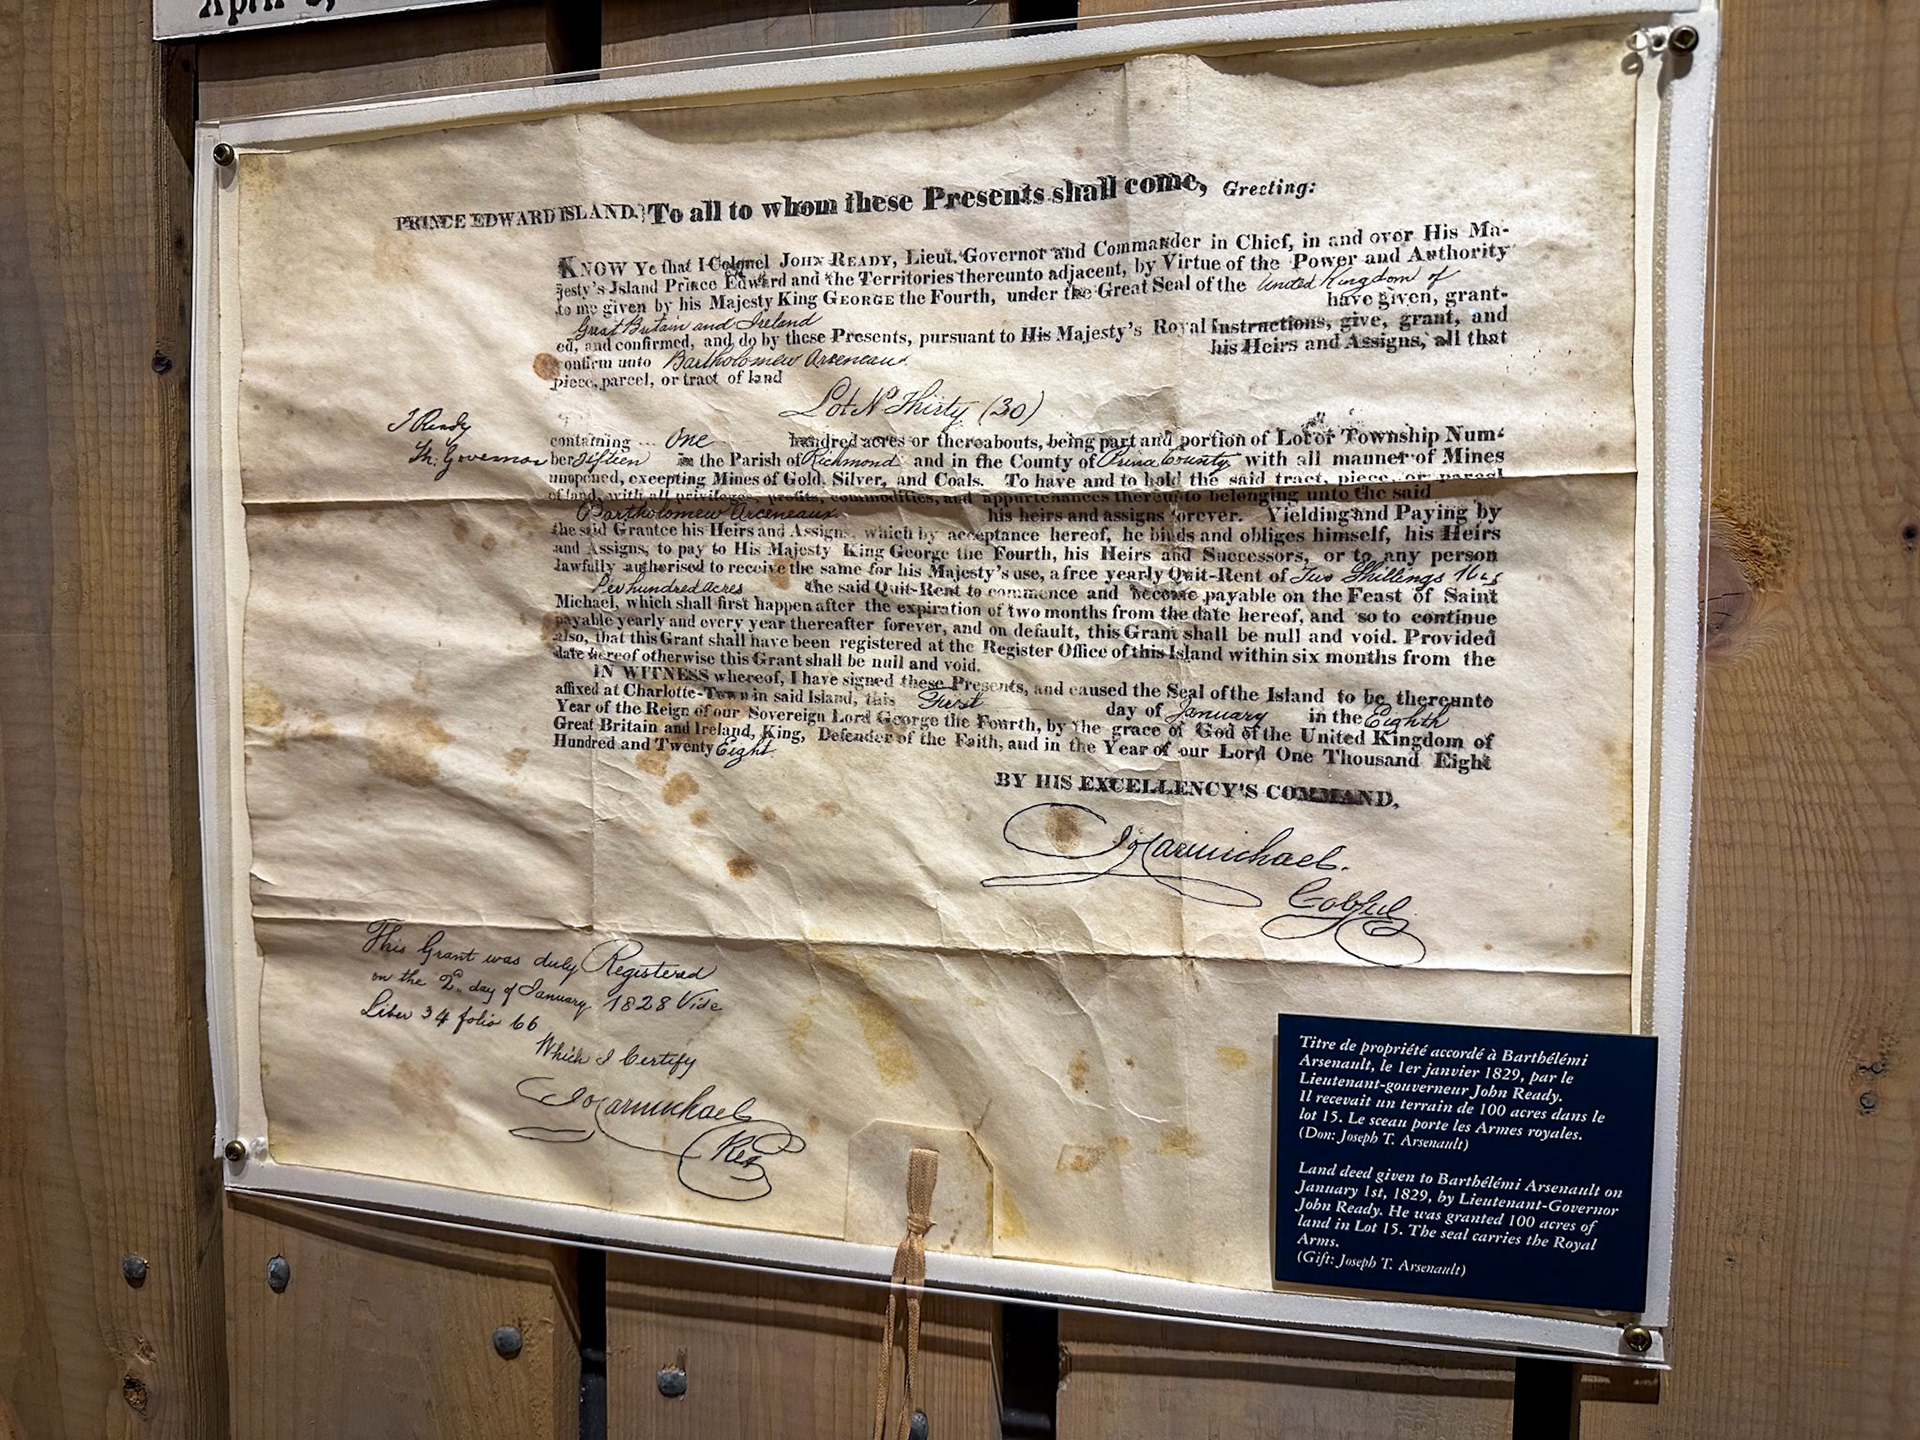 April
PRINCE EDWARD ISLAND. } To all to whom these Presents shall come, Greeting:
KNOW Ye that I Colonel JOHN READY, Lieut. Governor and Commander in Chief, in and over His Ma-
jesty's Island Prince Edward and the Territories thereunto adjacent, by Virtue of the Power and Authority
to me given by his Majesty King GEORGE the Fourth, under the Great Seal of the United Kingdom of
Great Britain and Ireland have given, grant-
ed, and confirmed, and do by these Presents, pursuant to His Majesty's Royal Instructions, give, grant, and
confirm unto Bartholomew Arceneaux his Heirs and Assigns, all that
piece, parcel, or tract of land
Lot No Thirty (30)
J Ready
Lt. Governor
containing One hundred acres or thereabouts, being part and portion of Lot or Township Num-
ber fifteen in the Parish of Richmond and in the County of Prince County with all manner of Mines
unopened, excepting Mines of Gold, Silver, and Coals. To have and to hold the said tract, piece, or parcel
of land, with all privileges, profits, commodities, and appurtenances thereunto belonging unto the said
Bartholomew Arceneaux his heirs and assigns forever. Yielding and Paying by
the said Grantee his Heirs and Assigns, which by acceptance hereof, he binds and obliges himself, his Heirs
and Assigns, to pay to His Majesty King George the Fourth, his Heirs and Successors, or to any person
lawfully authorised to receive the same for his Majesty's use, a free yearly Quit-Rent of Two Shillings
Per hundred acres the said Quit-Rent to commence and become payable on the Feast of Saint
Michael, which shall first happen after the expiration of two months from the date hereof, and so to continue
payable yearly and every year thereafter forever, and on default, this Grant shall be null and void. Provided
also, that this Grant shall have been registered at the Register Office of this Island within six months from the
date hereof otherwise this Grant shall be null and void.
IN WITNESS whereof, I have signed these Presents, and caused the Seal of the Island to be thereunto
affixed at Charlotte-Town in said Island, this First day of January in the Eighth
Year of the Reign of our Sovereign Lord George the Fourth, by the grace of God of the United Kingdom of
Great Britain and Ireland, King, Defender of the Faith, and in the Year of our Lord One Thousand Eight
Hundred and Twenty Eight
BY HIS EXCELLENCY'S COMMAND,
Jo Carmichael.
This Grant was duly Registered
on the 2d. day of January 1828 Vide
Liber 34 folio 66
Which I Certify
Jo Carmichael
Reg
Titre de propriété accordé à Barthélémi
Arsenault, le 1er janvier 1829, par le
Lieutenant-gouverneur John Ready.
Il recevait un terrain de 100 acres dans le
lot 15. Le sceau porte les Armes royales.
(Don: Joseph T. Arsenault)
Land deed given to Barthélémi Arsenault on
January 1st, 1829, by Lieutenant-Governor
John Ready. He was granted 100 acres of
land in Lot 15. The seal carries the Royal
Arms.
(Gift: Joseph T. Arsenault)